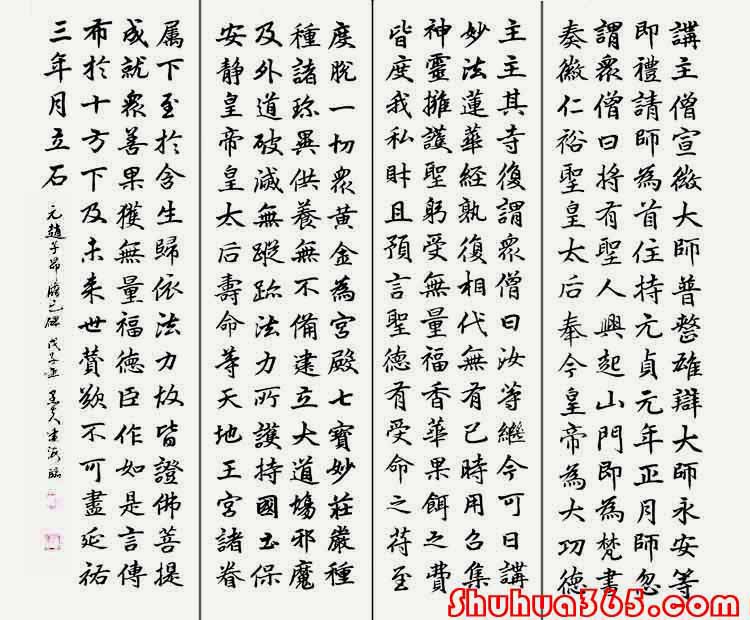 講主僧宣微大師普整雄辯大師永安等
即禮請師為首住持元貞元年正月師忽
謂衆僧曰將有聖人興起山門即為梵書
奏徽仁裕聖皇太后奉今皇帝為大功德
主主其寺復謂衆僧曰汝等繼今可日講
妙法蓮華經孰復相代無有已時用召集
神靈擁護聖躬受無量福香華果餌之費
皆度我私財且預言聖德有受命之苻至
度脫一切衆黃金為宮殿七寶妙莊嚴種
種諸珍異供養無不備建立大道場邪魔
及外道破滅無蹤跡法力所護持國土保
安靜皇帝皇太后壽命等天地王宮諸眷
属下至於含生歸依法力故皆證佛菩提
成就衆善果獲無量福德臣作如是言傳
布於十方下及未来世贊歎不可盡延祐
三年月立石
元趙子昂膽巴碑戊子
Shuhua365.com